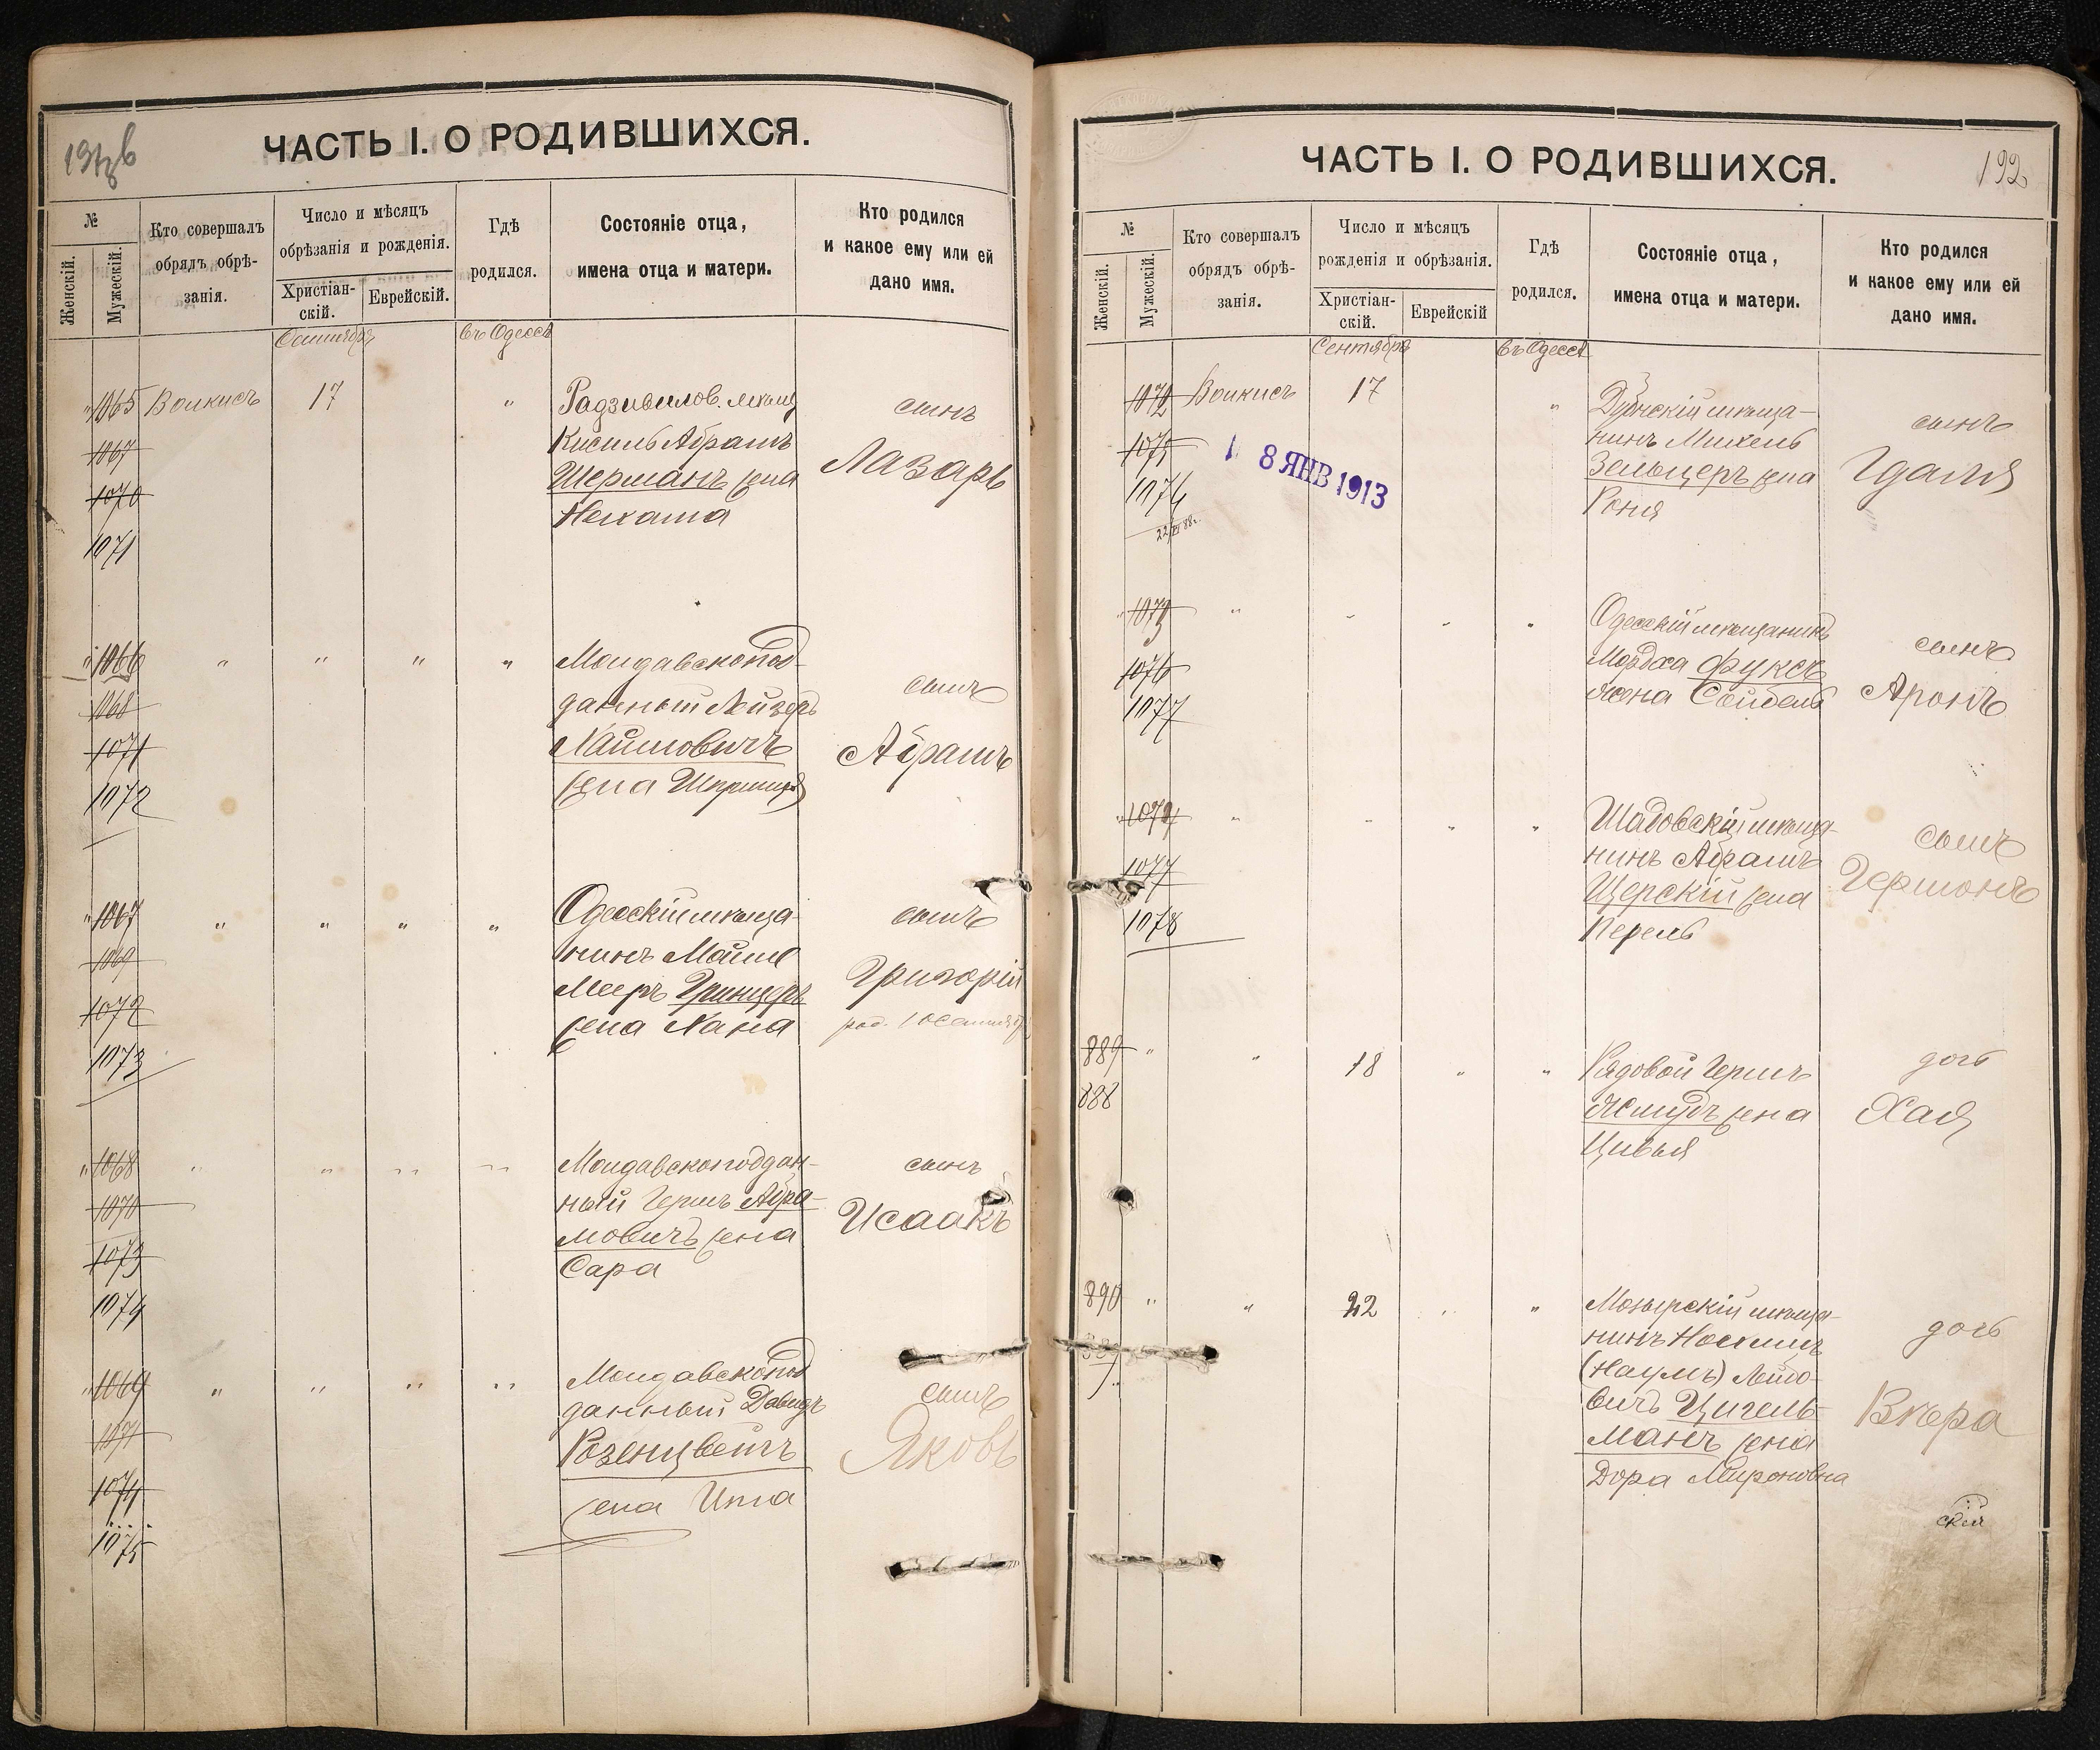 ЧАСТЬ I. О РОДИВШИХСЯ.
№
Женскій.
Мужескій.
Кто совершалъ
обрядъ обрѣ-
занія.
Число и мѣсяцъ
обрѣзанія и рожденія.
Христіан-
скій.
Еврейскій.
Гдѣ
родился.
Состояніе отца,
имена отца и матери.
Кто родился
и какое ему или ей
дано имя.
въ Одессѣ
1065
1067
1070
1071
17
"
Радзивилов. мѣщ
Кисиль Абрамъ
Шерманъ жена
Нехама
сынъ
Лазарь
" 1066
1068
1071
1072
" " " "
Молдавскопод-
данный Лейзеръ
Хаимовичъ
жена
сынъ
Абрамъ
" 1067
1069
1072
1073
" " " "
Одесскій мѣща-
нинъ
Мееръ
жена Хана
сынъ
Григорій
" 1068
1070
1073
1074
" " " "
Молдавскоподдан-
ный Гершъ Абра-
мовичъ жена
Сара
сынъ
Исаакъ
" 1069
1071
1074
1075
" " " "
Молдавскопод
данный Давидъ
Розенцвейгъ
жена Ита
сынъ
Яковъ
ЧАСТЬ I. О РОДИВШИХСЯ.
192
№
Женскій.
Мужескій.
Кто совершалъ
обрядъ обрѣ-
занія.
Число и мѣсяцъ
рожденія и обрѣзанія.
Христіан-
скій.
Еврейскій
Гдѣ
родился.
Состояніе отца,
имена отца и матери.
Кто родился
и какое ему или ей
дано имя.
Сентябрь
въ Одессѣ
1075
1076
17
"
8 ЯНВ 1913
Дубенскій мѣща-
нинъ Михель
Зельцеръ жена
Роня
сынъ
Гдаля
1076
1077
" " " "
Одесскій мѣщанинъ
Мордха Фуксъ
жена Сейбель
сынъ
Аронъ
1077
1078
" " " "
Шадовскій мѣща-
нинъ Абрамъ
Щерскій жена
Перель
сынъ
Германъ
889
888
" " 18 " "
Рядовой Гершъ
жена
Цивья
дочь
Хая
890
889
" " 22 " "
Мозырскій мѣща-
нинъ
(Наумъ) Лейбо-
вичъ Цигель-
манъ жена
Дора Мироновна
дочь
Вѣра